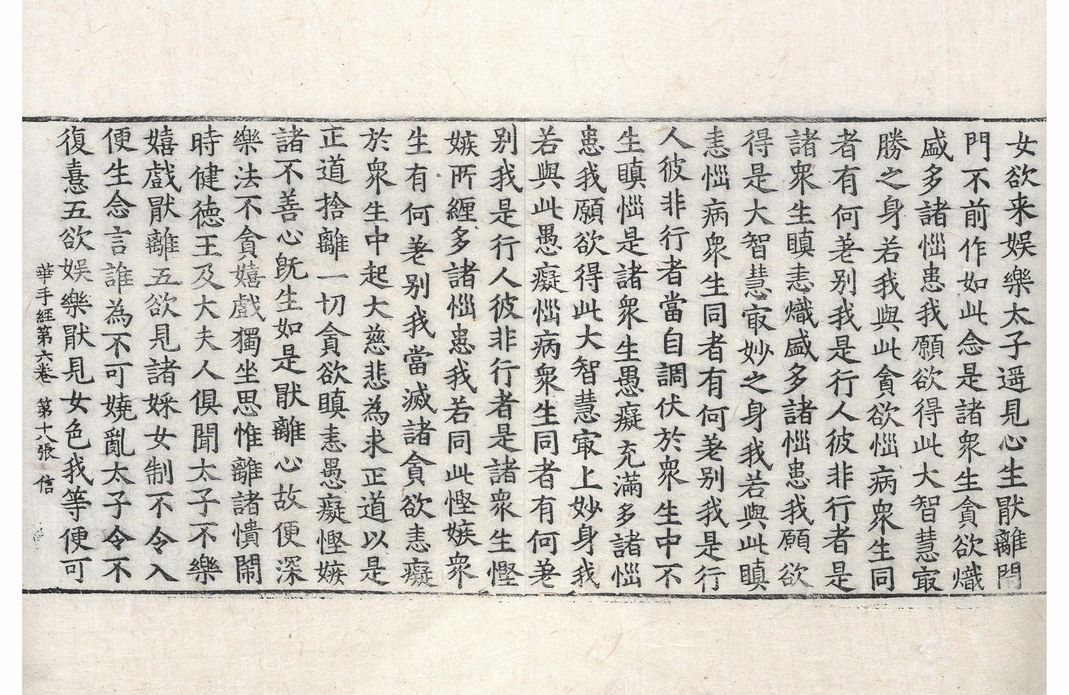 女欲来娛樂太子遥見心生猒離閇
門不前作如此念是諸衆生貪欲熾
盛多諸惱患我願欲得此大智慧㝡
勝之身若我與此貪欲惱病衆生同
者有何荖别我是行人彼非行者是
諸衆生瞋恚熾盛多諸惱患我願欲
得是大智慧㝡妙之身我若與此瞋
恚惱病衆生同者有何荖别我是行
人彼非行者當自調伏於衆生中不
生瞋惱是諸衆生愚癡充滿多諸惱
患我願欲得此大智慧㝡上妙身我
若與此愚癡惱病衆生同者有何荖
别我是行人彼非行者是諸衆生慳
嫉所纒多諸惱患我若同此慳嫉衆
生有何荖别我當滅諸貪欲恚癡
於衆生中起大慈悲為求正道以是
正道捨離一切貪欲瞋恚愚癡慳嫉
諸不善心旣生如是猒離心故便深
樂法不貪嬉戲獨坐思惟離諸憒閙
時健德王及大夫人俱聞太子不樂
嬉戲猒離五欲見諸婇女制不令入
便生念言誰為不可嬈亂太子令不
復憙五欲娛樂猒見女色我等便可
華手經第六卷 第十八張 信